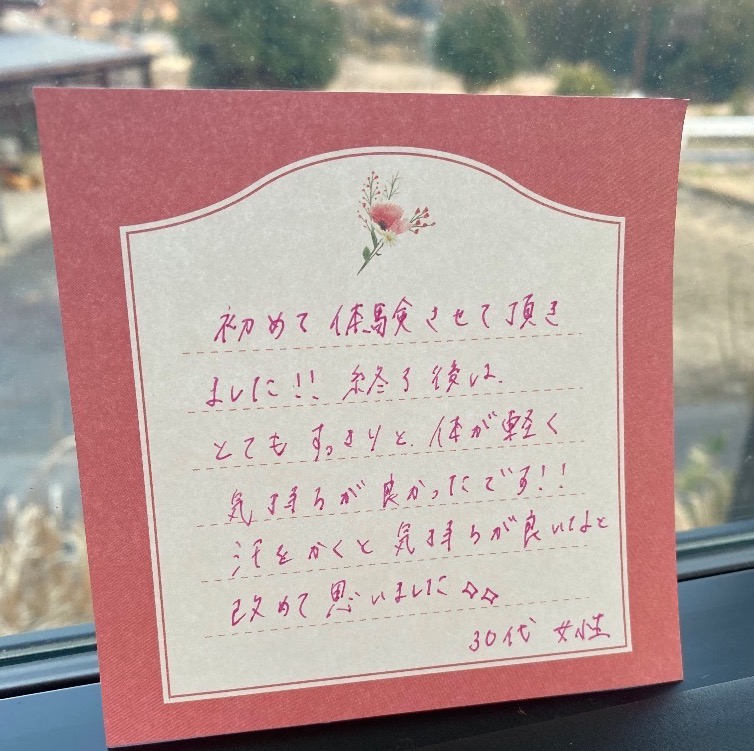 初めて体験させて頂き
ました!! 終了後は、
とてもすっきりと、体が軽く
気持ちが良かったです!!
汗をかくと気持ちが良いなと
改めて思いました✧✧
30代 女性